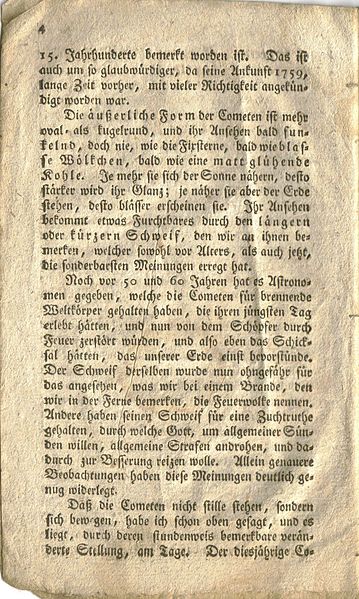 4
15. Jahrhunderte bemerkt worden ist. Das ist
auch um so glaubwürdiger, da seine Ankunft 1759,
lange Zeit vorher, mit vieler Richtigkeit angekün-
digt worden war.
Die äußerliche Form der Cometen ist mehr
oval- als kugelrund, und ihr Ansehen bald fun-
kelnd, doch nie, wie die Fixsterne, bald wie blas-
se Wölkchen, bald wie eine matt glühende
Kohle. Je mehr sie sich der Sonne nähern, desto
stärker wird ihr Glanz; je näher sie aber der Erde
stehen, desto blässer erscheinen sie. Ihr Ansehen
bekommt etwas Furchtbares durch den längern
oder kürzern Schweif, den wir an ihnen be-
merken, welcher sowohl vor Alters, als auch jetzt,
die sonderbarsten Meinungen erregt hat.
Noch vor 50 und 60 Jahren hat es Astrono-
men gegeben, welche die Cometen für brennende
Weltkörper gehalten haben, die ihren jüngsten Tag
erlebt hätten, und nun von dem Schöpfer durch
Feuer zerstört würden, und also eben das Schick-
sal hätten, das unserer Erde einst bevorstünde.
Der Schweif derselben wurde nun ohngefähr für
das angesehen, was wir bei einem Brande, den
wir in der Ferne bemerken, die Feuerwolke nennen.
Andere haben seinen Schweif für eine Zuchtruthe
gehalten, durch welche Gott, um allgemeiner Sün-
den willen, allgemeine Strafen androhen, und da-
durch zur Besserung reizen wolle. Allein genauere
Beobachtungen haben diese Meinungen deutlich ge-
nug widerlegt.
Daß die Cometen nicht stille stehen, sondern
sich bewegen, habe ich schon oben gesagt, und es
liegt, durch deren stundenweis bemerkbare verän-
derte Stellung, am Tage. Der diesjährige Co-